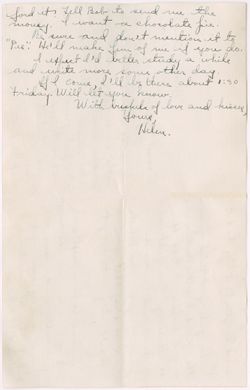 ford it? Tell Bob to send me the
money. I want a chocolate pie.
Be sure and don't mention it to
"Pie". He'll make fun of me if you do.
I expect I'd better study a while
and write more some other day.
If I come, I'll be there about 1:30
Friday. Will let you know.
With bushels of love and kisses,
Yours,
Helen.